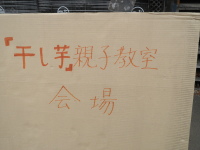 『干し芋』親子教室
会場